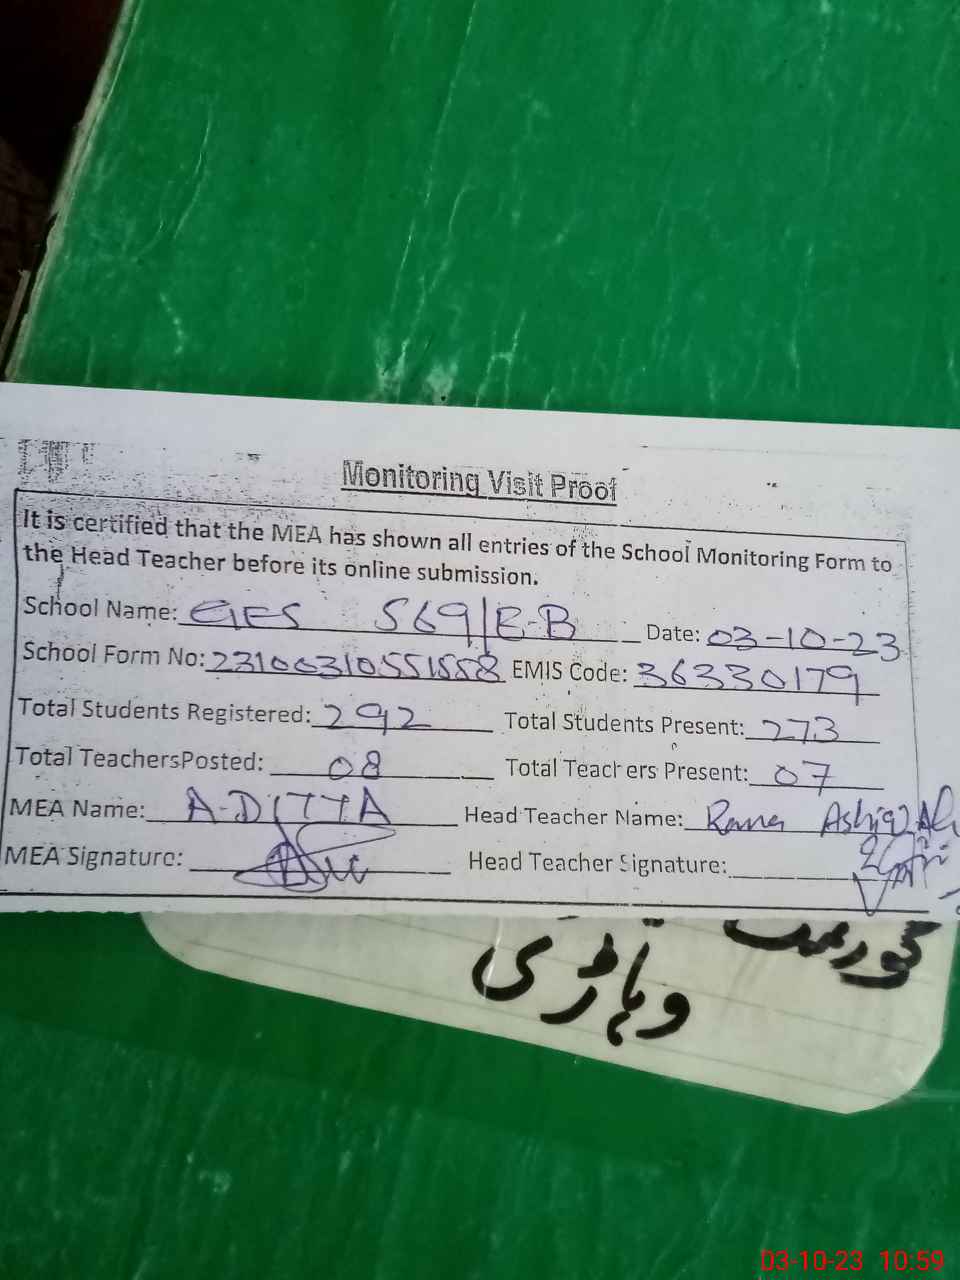 Monitoring Visit Proof
It is certified that the MEA has shown all entries of the School Monitoring Form to
the Head Teacher before its online submission.
School Name: GES 569/E-B Date: 03-10-23
School Form No: 23100310551558 EMIS Code: 36330179
Total Students Registered: 292 Total Students Present: 273
Total TeachersPosted: 08 Total Teachers Present: 07
MEA Name: A-DITTA Head Teacher Name: Rana Ashiq Ali
MEA Signature: Head Teacher Signature:
وہاڑی
03-10-23 10:59